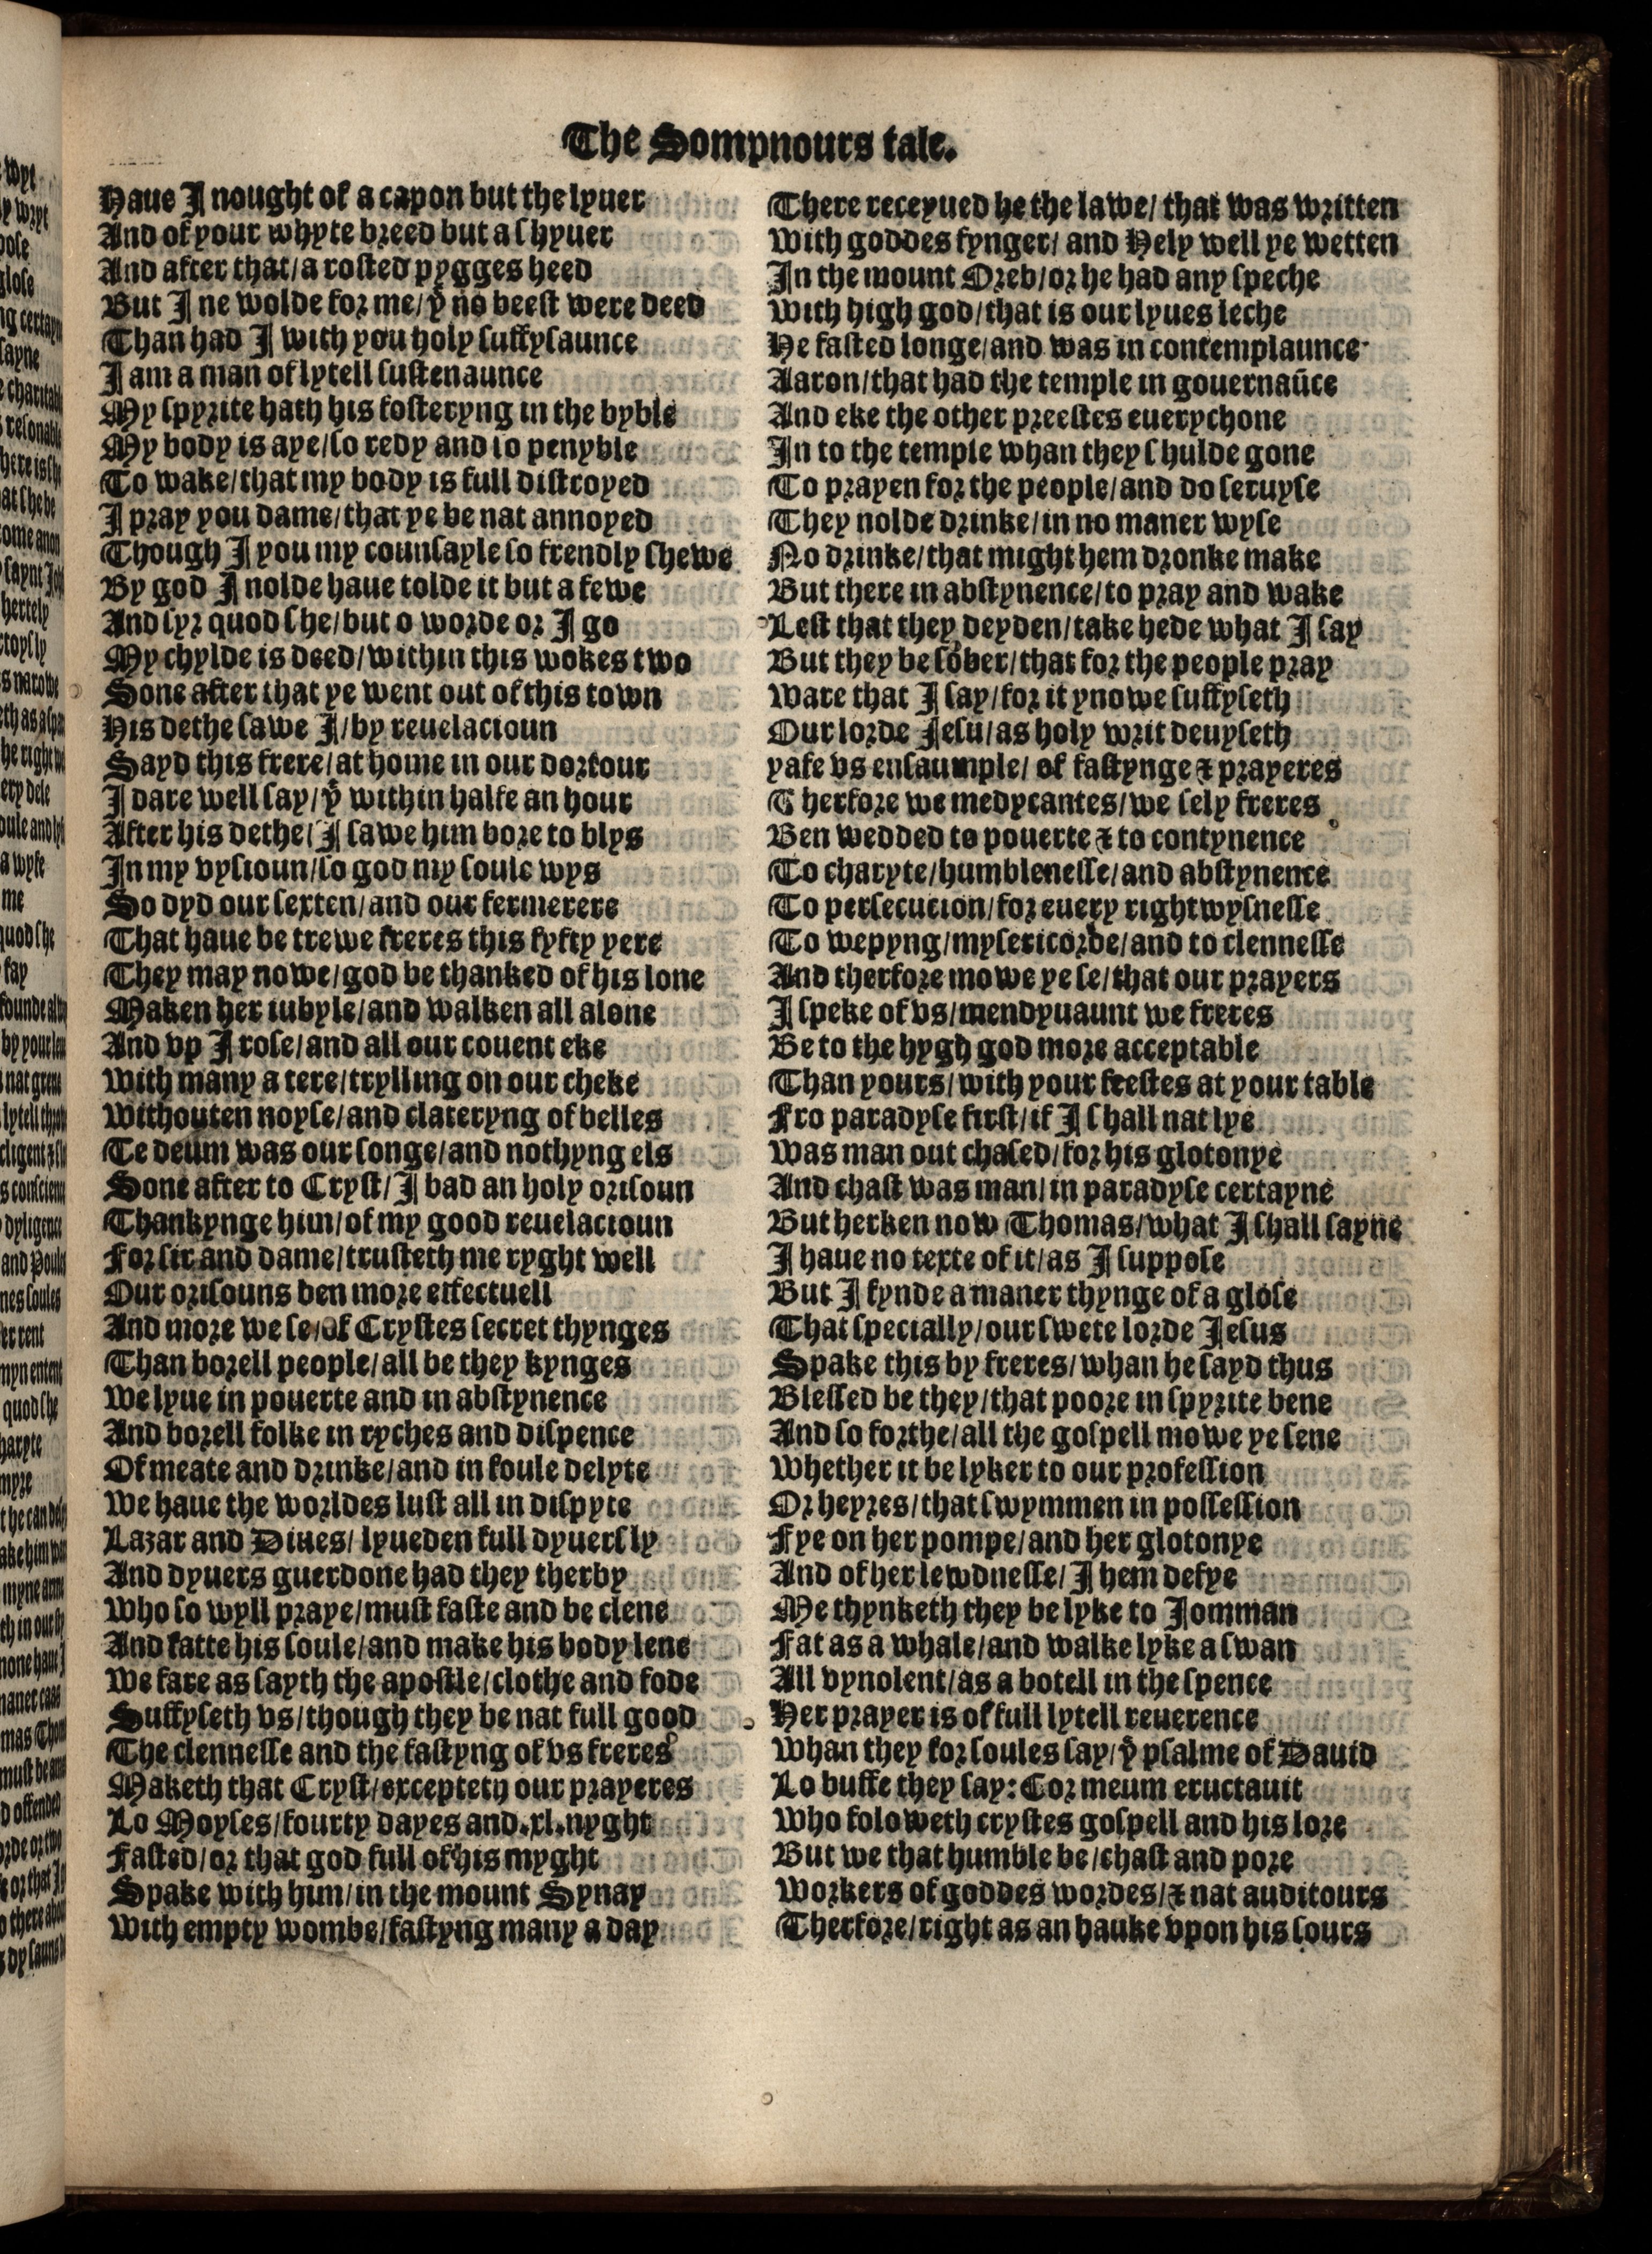 The Sompnours tale.
Haue I nought of a capon but the lyuer
And of your whyte breed but a shyuer
And after that/a rosted pygges heed
But I ne wolde for me/yͭ no beest were deed
Than had I with you holy suffysaunce
I am a man of lytell sustenaunce
My spyrite hath his fosteryng in the byble
My body is aye/so redy and so penyble
To wake/that my body is full distroyed
I pray you dame/that ye be nat annoyed
Though I you my counsayle so frendly shewe
By god I nolde haue tolde it but a fewe
And syr quod she/but o worde or I go
My chylde is deed/within this wokes two
Sone after that ye went out of this town
His dethe sawe I/by reuelacioun
Sayd this frere/at home in our dortour
I dare well say/yͭ within halfe an hour
After his dethe/I sawe him bore to blys
In my vysioun/so god my soule wys
So dyd our sexten/and our fermerere
That haue be trewe freres this fyfty yere
They may nowe/god be thanked of his lone
Maken her iubyle/and walken all alone
And vp I rose/and all our couent eke
With many a tere/trylling on our cheke
Withouten noyse/and clateryng of belles
Te deum was our songe/and nothyng els
Sone after to Cryst/I bad an holy orisoun
Thankynge him/of my good reuelacioun
For sir and dame/trusteth me ryght well
Our orisouns ben more effectuell
And more we se/of Crystes secret thynges
Than borell people/all be they kynges
We lyue in pouerte and in abstynence
And borell folke in ryches and dispence
Of meate and drinke/and in foule delyte
We haue the worldes lust all in dispyte
Lazar and Diues/lyueden full dyuersly
And dyuers guerdone had they therby
Who so wyll praye/must faste and be clene
And fatte his soule/and make his body lene
We fare as sayth the apostle/clothe and fode
Suffyseth vs/though they be nat full good
The clennesse and the fastyng of vs freres
Maketh that Cryst/excepteth our prayeres
Lo Moyses/fourty dayes and.xl.nyght
Fasted/or that god full of his myght
Spake with him/in the mount Synay
With empty wombe/fastyng many a day
There receyued he the lawe/that was written
With goddes fynger/and Hely well ye wetten
In the mount Oreb/or he had any speche
With high god/that is our lyues leche
He fasted longe/and was in contemplaunce
Aaron/that had the temple in gouernaūce
And eke the other preestes euerychone
In to the temple whan they shulde gone
To prayen for the people/and do seruyse
They nolde drinke/in no maner wyse
No drinke/that might hem dronke make
But there in abstynence/to pray and wake
Lest that they deyden/take hede what I say
But they be sober/that for the people pray
Ware that I say/for it ynowe suffyseth
Our lorde Jesu/as holy writ deuyseth
yafe vs ensaumple/of fastynge & prayeres
Therfore we medycantes/we sely freres
Ben wedded to pouerte & to contynence
To charyte/humblenesse/and abstynence
To persecucion/for euery rightwysnesse
To wepyng/mysericorde/and to clennesse
And therfore mowe ye se/that our prayers
I speke of vs/mendyuaunt we freres
Be to the hygh god more acceptable
Than yours/with your feestes at your table
Fro paradyse first/if I shall nat lye
Was man out chased/for his glotonye
And chast was man/in paradyse certayne
But herken now Thomas/what I shall sayne
I haue no texte of it/as I suppose
But I fynde a maner thynge of a glose
That specially/our swete lorde Jesus
Spake this by freres/whan he sayd thus
Blessed be they/that poore in spyrite bene
And so forthe/all the gospell mowe ye sene
Whether it be lyker to our profession
Or heyres/that swymmen in possession
Fye on her pompe/and her glotonye
And of her lewdnesse/I hem defye
Me thynketh they be lyke to Jomman
Fat as a whale/and walke lyke a swan
All vynolent/as a botell in the spence
Her prayer is of full lytell reuerence
Whan they for soules say/yͤ psalme of Dauid
Lo buffe they say: Cor meum eructauit
Who foloweth crystes gospell and his lore
But we that humble be/chast and pore
Workers of goddes wordes/& nat auditours
Therfore/right as an hauke vpon his sours